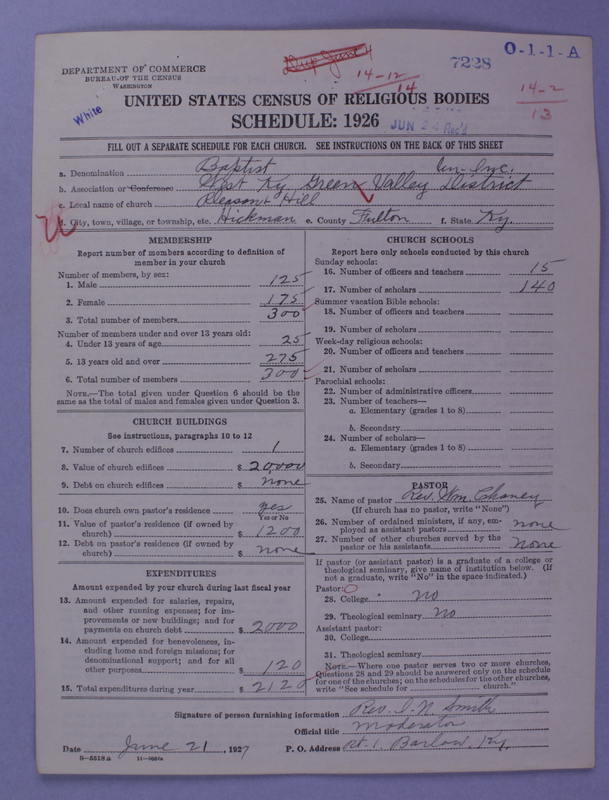 O-1-1-A
7228
14-12
14
DEPARTMENT OF COMMERCE
BUREAU OF THE CENSUS
WASHINGTON
14-2
13
White
UNITED STATES CENSUS OF RELIGIOUS BODIES
SCHEDULE: 1926
JUN 24 Rec'd
FILL OUT A SEPARATE SCHEDULE FOR EACH CHURCH. SEE INSTRUCTIONS ON THE BACK OF THIS SHEET
a. Denomination Baptist Un-Inc.
b. Association or Conference West Ky Green Valley District
c. Local name of church Pleasant Hill
d. City, town, village, or township, etc. Hickman e. County Fulton f. State Ky.
MEMBERSHIP
Report number of members according to definition of
member in your church
Number of members, by sex:
1. Male 125
2. Female 175
3. Total number of members 300
Number of members under and over 13 years old:
4. Under 13 years of age 25
5. 13 years old and over 275
6. Total number of members 300
NOTE.—The total given under Question 6 should be the
same as the total of males and females given under Question 3.
CHURCH BUILDINGS
See instructions, paragraphs 10 to 12
7. Number of church edifices 1
8. Value of church edifices $ 20,000
9. Debt on church edifices $ none
10. Does church own pastor's residence yes
Yes or No
11. Value of pastor's residence (if owned by
church) $ 1200
12. Debt on pastor's residence (if owned by
church) $ none
EXPENDITURES
Amount expended by your church during last fiscal year
13. Amount expended for salaries, repairs,
and other running expenses; for im-
provements or new buildings; and for
payments on church debt $ 2000
14. Amount expended for benevolences, in-
cluding home and foreign missions; for
denominational support; and for all
other purposes $ 120
15. Total expenditures during year $ 2120
CHURCH SCHOOLS
Report here only schools conducted by this church
Sunday schools:
16. Number of officers and teachers 15
17. Number of scholars 140
Summer vacation Bible schools:
18. Number of officers and teachers
19. Number of scholars
Week-day religious schools:
20. Number of officers and teachers
21. Number of scholars
Parochial schools:
22. Number of administrative officers
23. Number of teachers—
a. Elementary (grades 1 to 8)
b. Secondary
24. Number of scholars—
a. Elementary (grades 1 to 8)
b. Secondary
PASTOR
25. Name of pastor Rev. Wm. Chaney
(If church has no pastor, write "None")
26. Number of ordained ministers, if any, em-
ployed as assistant pastors none
27. Number of other churches served by the
pastor or his assistants None
If pastor (or assistant pastor) is a graduate of a college or
theological seminary, give name of institution below. (If
not a graduate, write "No" in the space indicated.)
Pastor:
28. College no
29. Theological seminary No
Assistant pastor:
30. College
31. Theological seminary
NOTE.—Where one pastor serves two or more churches,
Questions 28 and 29 should be answered only on the schedule
for one of the churches; on the schedules for the other churches,
write "See schedule for church."
Signature of person furnishing information Rev. I. N. Smith
Official title Moderator
Date June 21, 1927 P. O. Address Rt. 1. Barlow, Ky.